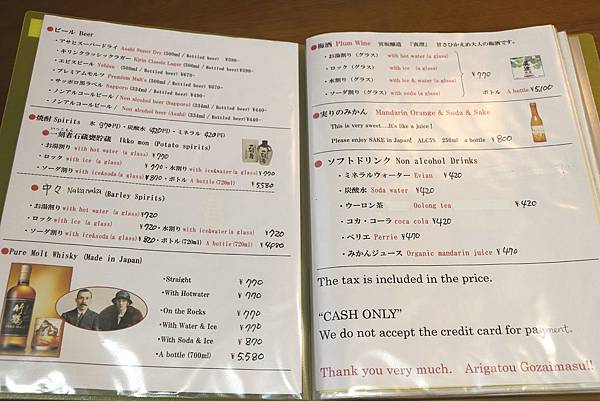 ●ビール Beer
・アサヒスーパードライ Asahi Super Dry (500ml / Bottled beer)
・キリンクラシックラガー Kirin Classic Lager (500ml / Bottled beer)
・エビスビール Yebisu (500ml / Bottled beer) ¥670-
・プレミアムモルツ Premium Malt's (500ml / Bottled beer)
・サッポロ黒ラベル Sapporo (334ml / Bottled beer)
・ノンアルコールビール / Non alcohol beer (Sapporo) (334ml / Bottled beer) ¥440-
・ノンアルコールビール / Non alcohol beer (Asahi) (334ml / Bottled beer) ¥440-
●焼酎 Spirits 水 円・炭酸水 420円・ミネラル 420円
いっこもん
一刻者石蔵甕貯蔵 Ikko mon (Potato spirits)
・お湯割り with hot water (a glass) ¥770
・ロック with ice (a glass) ¥770・水割り with ice&water (a glass) ¥770
・ソーダ割り with ice&soda (a glass) ¥870・ボトル A bottle (720ml) ¥5,580
●中々 Nakanaka (Barley Spirits)
・お湯割り with hot water (a glass) ¥720
・ロック with ice (a glass) ¥720・水割り with ice&water (a glass) ¥720
・ソーダ割り with ice&soda (a glass) ¥820・ボトル (720ml) A bottle (720ml) ¥4,080
●Pure Molt Whisky (Made in Japan)
・Straight ¥770
・With Hotwater ¥770
・On the Rocks ¥770
・With Water & Ice ¥770
・With Soda & Ice ¥870
・A bottle (700ml) ¥5,580
竹鶴
●梅酒 Plum Wine 宮坂醸造 「真澄」 甘さひかえめ大人の梅酒です。
・お湯割り (グラス) with hot water (a glass)
・ロック (グラス) with ice (a glass)
・水割り (グラス) with ice & water (a glass) ¥770
・ソーダ割り (グラス) with soda (a glass) A bottle ¥5,100
●実りのみかん Mandarin Orange & Soda & Sake
This is very sweet....It's like a juice !
Please enjoy SAKE in Japan! ALC5% 250ml a bottle ¥800
●ソフトドリンク Non alcohol Drinks
・ミネラルウォーター Evian ¥420
・炭酸水 Soda water ¥420
・ウーロン茶 Oolong tea ¥420
・コカ・コーラ coca cola ¥420
・ペリエ Perrie ¥470
・みかんジュース Organic mandarin juice ¥470
The tax is included in the price.
“CASH ONLY”
We do not accept the credit card for payment.
Thank you very much. Arigatou Gozaimasu!!